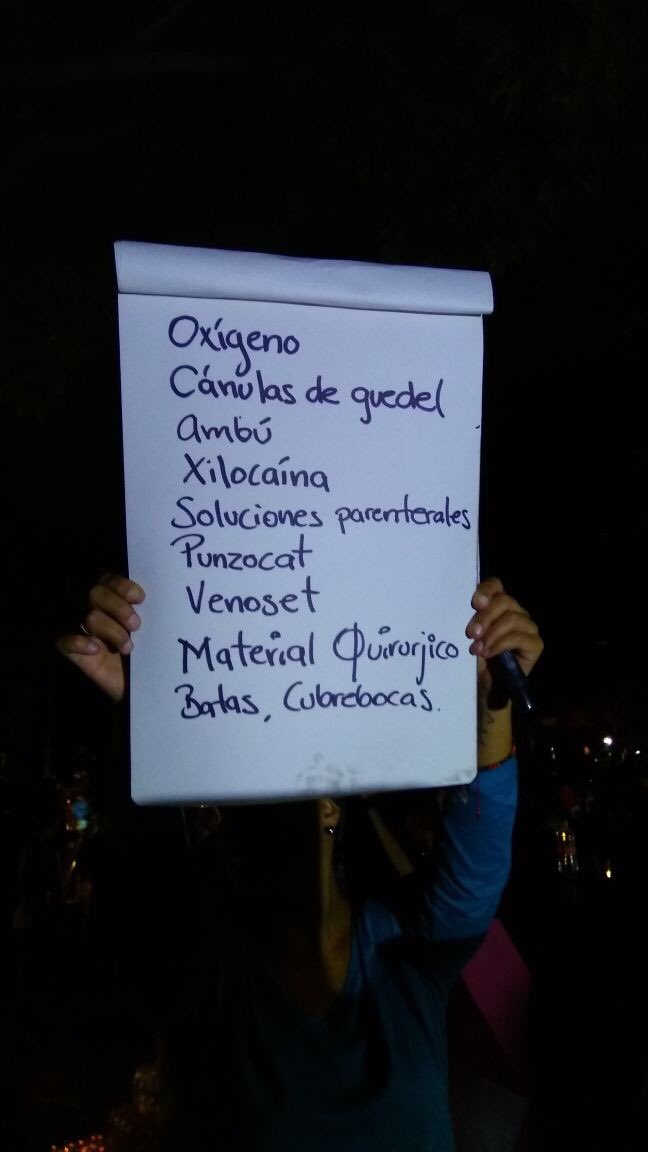 Oxígeno
Cánulas de guedel
ambú
Xilocaína
Soluciones parenterales
Punzocat
Venoset
Material Quirurjico
Batas, Cubrebocas.